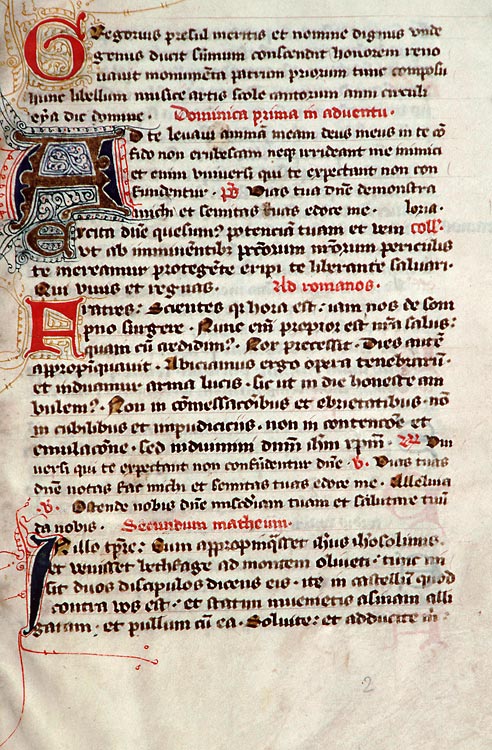 Gregorius presul meritis et nomine dignus unde
genus ducit sūmum conscendit honorem reno
vavit monumēta patrum priorum tunc composu
it hunc libellum musice artis scole cantorum anni circuli
Dominica prima in adventu.
Ad te levavi animā meam deus meus in te cō
fido non erubescam neqꝫ irrideant me inimici
et enim universi qui te expectant non con
fundentur. ps Vias tuas dn̄e demonstra
michi et semitas tuas edoce me. loria.
Excita dn̄e quesum9 potenciā tuam et veni coll.
ut ab imminentibꝫ pccōrum nrōrum periculis
te mereamur protegēte eripi te liberante salvari.
Qui vivis et regnas. Ad romanos.
Fratres: Scientes qꝫ hora est: iam nos de som
pno surgere. Nunc em̄ propior est nrā salus:
quam cū credidim9. Nox precessit. Dies autē
appropinquavit. Abiciamus ergo opera tenebrarū:
et induamur arma lucis. sic ut in die honeste am
bulem9. Non in cōmessacōibus et ebrietatibus. nō
in cubilibus et impudiciciis. non in contencōe et
emulacōne. sed induimini dnm̄ ihm̄ xpm̄. Uni
versi qui te expectant non confūdentur dn̄e. v. Vias tuas
dn̄e notas fac michi et semitas tuas edoce me. Alleluia
v. Ostende nobis dn̄e misc̄diam tuam et salutare tuū
da nobis. Secundum matheum.
In illo tp̄re: Cum appropinqsset ihs̄us iherosolimis.
et venisset bethfage ad montem oliveti: tunc mi
sit duos discipulos dicens eis. ite in castellū quod
contra vos est. et statim invenietis asinam alli
gatam. et pullum cū ea. Solvite: et adducite m̄.
2